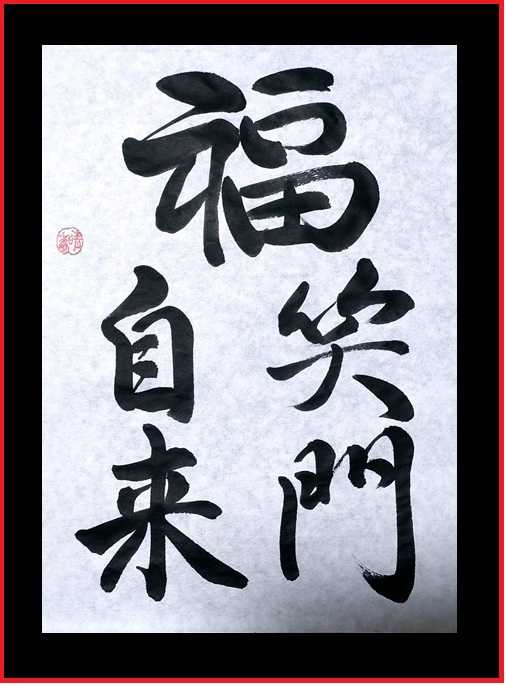 福
笑門
自来